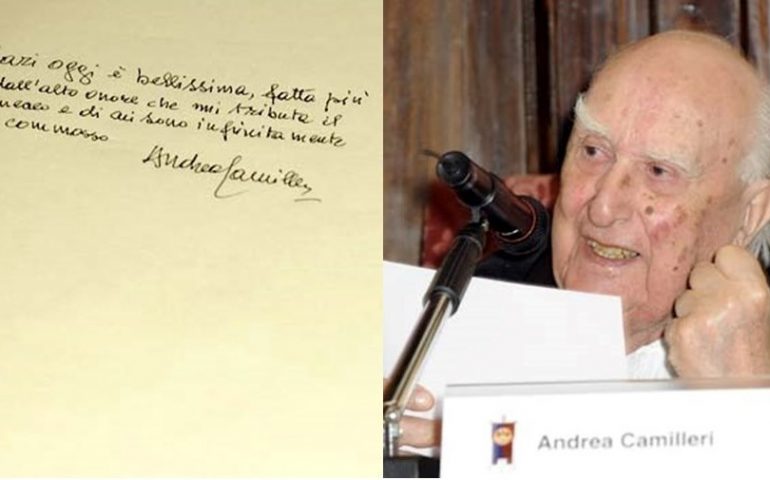 ari oggi è bellissima, fatta più
dall'alto onore che mi tributa il
neo e di cui sono infinitamente
commosso
Andrea Camilleri
Andrea Camilleri